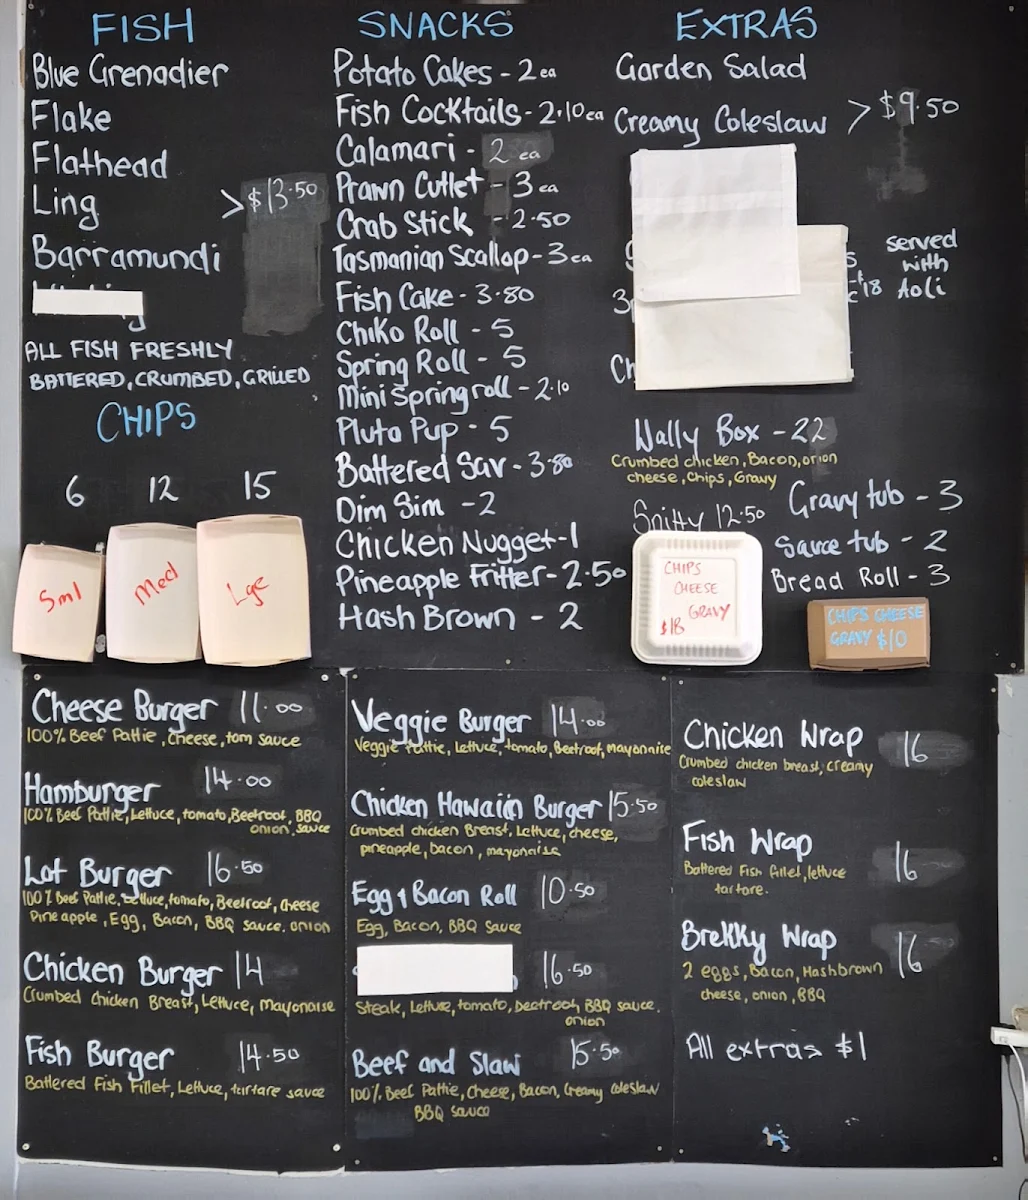 FISH
Blue Grenadier
Flake
Flathead
Ling
> $13.50
Barramundi
ALL FISH FRESHLY
BATTERED, CRUMBED, GRILLED
CHIPS
6 12 15
Sml Med Lge
SNACKS
Potato Cakes - 2 ea
Fish Cocktails - 2.10 ea
Calamari - 2 ea
Prawn Cutlet - 3 ea
Crab Stick - 2.50
Tasmanian Scallop - 3 ea
Fish Cake - 3.80
Chiko Roll - 5
Spring Roll - 5
Mini Spring roll - 2.10
Pluto Pup - 5
Battered Sav - 3.80
Dim Sim - 2
Chicken Nugget - 1
Pineapple Fritter - 2.50
Hash Brown - 2
EXTRAS
Garden Salad
Creamy Coleslaw > $9.50
served
with
$18 Aoli
Wally Box - 22
Crumbed chicken, Bacon, onion
cheese, Chips, Gravy
Snitty 12.50
Gravy tub - 3
Sauce tub - 2
Bread Roll - 3
CHIPS
CHEESE
GRAVY
$18
CHIPS CHEESE
GRAVY $10
Cheese Burger 11.00
100% Beef Pattie, Cheese, tom sauce
Hamburger 14.00
100% Beef Pattie, Lettuce, tomato, Beetroot, BBQ
onion, sauce
Lot Burger 16.50
100% Beef Pattie, Lettuce, tomato, Beetroot, Cheese
Pineapple, Egg, Bacon, BBQ sauce. onion
Chicken Burger 14
Crumbed Chicken Breast, Lettuce, Mayonaise
Fish Burger 14.50
Battered Fish Fillet, Lettuce, tartare sauce
Veggie Burger 14.00
Veggie Pattie, Lettuce, tomato, Beetroot, Mayonnaise
Chicken Hawaiin Burger 15.50
Crumbed chicken Breast, Lettuce, cheese,
pineapple, bacon, mayonaise
Egg & Bacon Roll 10.50
Egg, Bacon, BBQ Sauce
16.50
Steak, Lettuce, tomato, beetroot, BBQ sauce.
onion
Beef and Slaw 15.50
100% Beef Pattie, Cheese, Bacon, Creamy coleslaw
BBQ sauce
Chicken Wrap 16
Crumbed chicken breast, creamy
coleslaw
Fish Wrap 16
Battered Fish fillet, lettuce
tartare.
Brekky Wrap 16
2 eggs, Bacon, Hashbrown
cheese, onion, BBQ
All extras $1